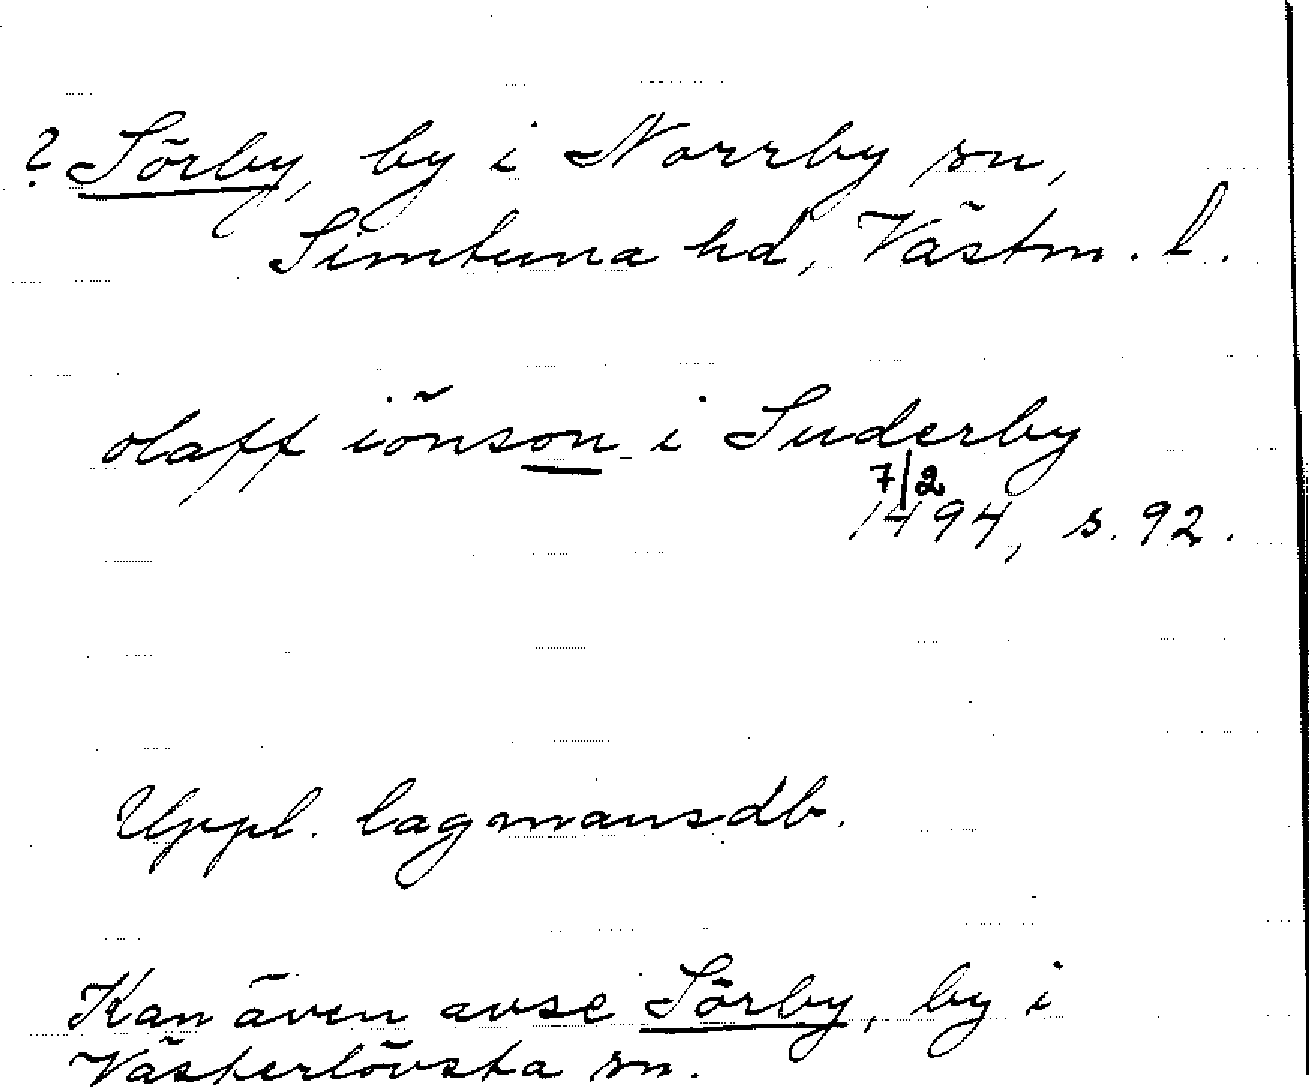 ? Sörby, by i Norrby sn,
Simtuna hd, Västm. l.
olaff iönson i Suderby
7/2
1494, s. 92.
Uppl. lagmansdb.
Kan även avse Sörby, by i
Västerlövsta sn.